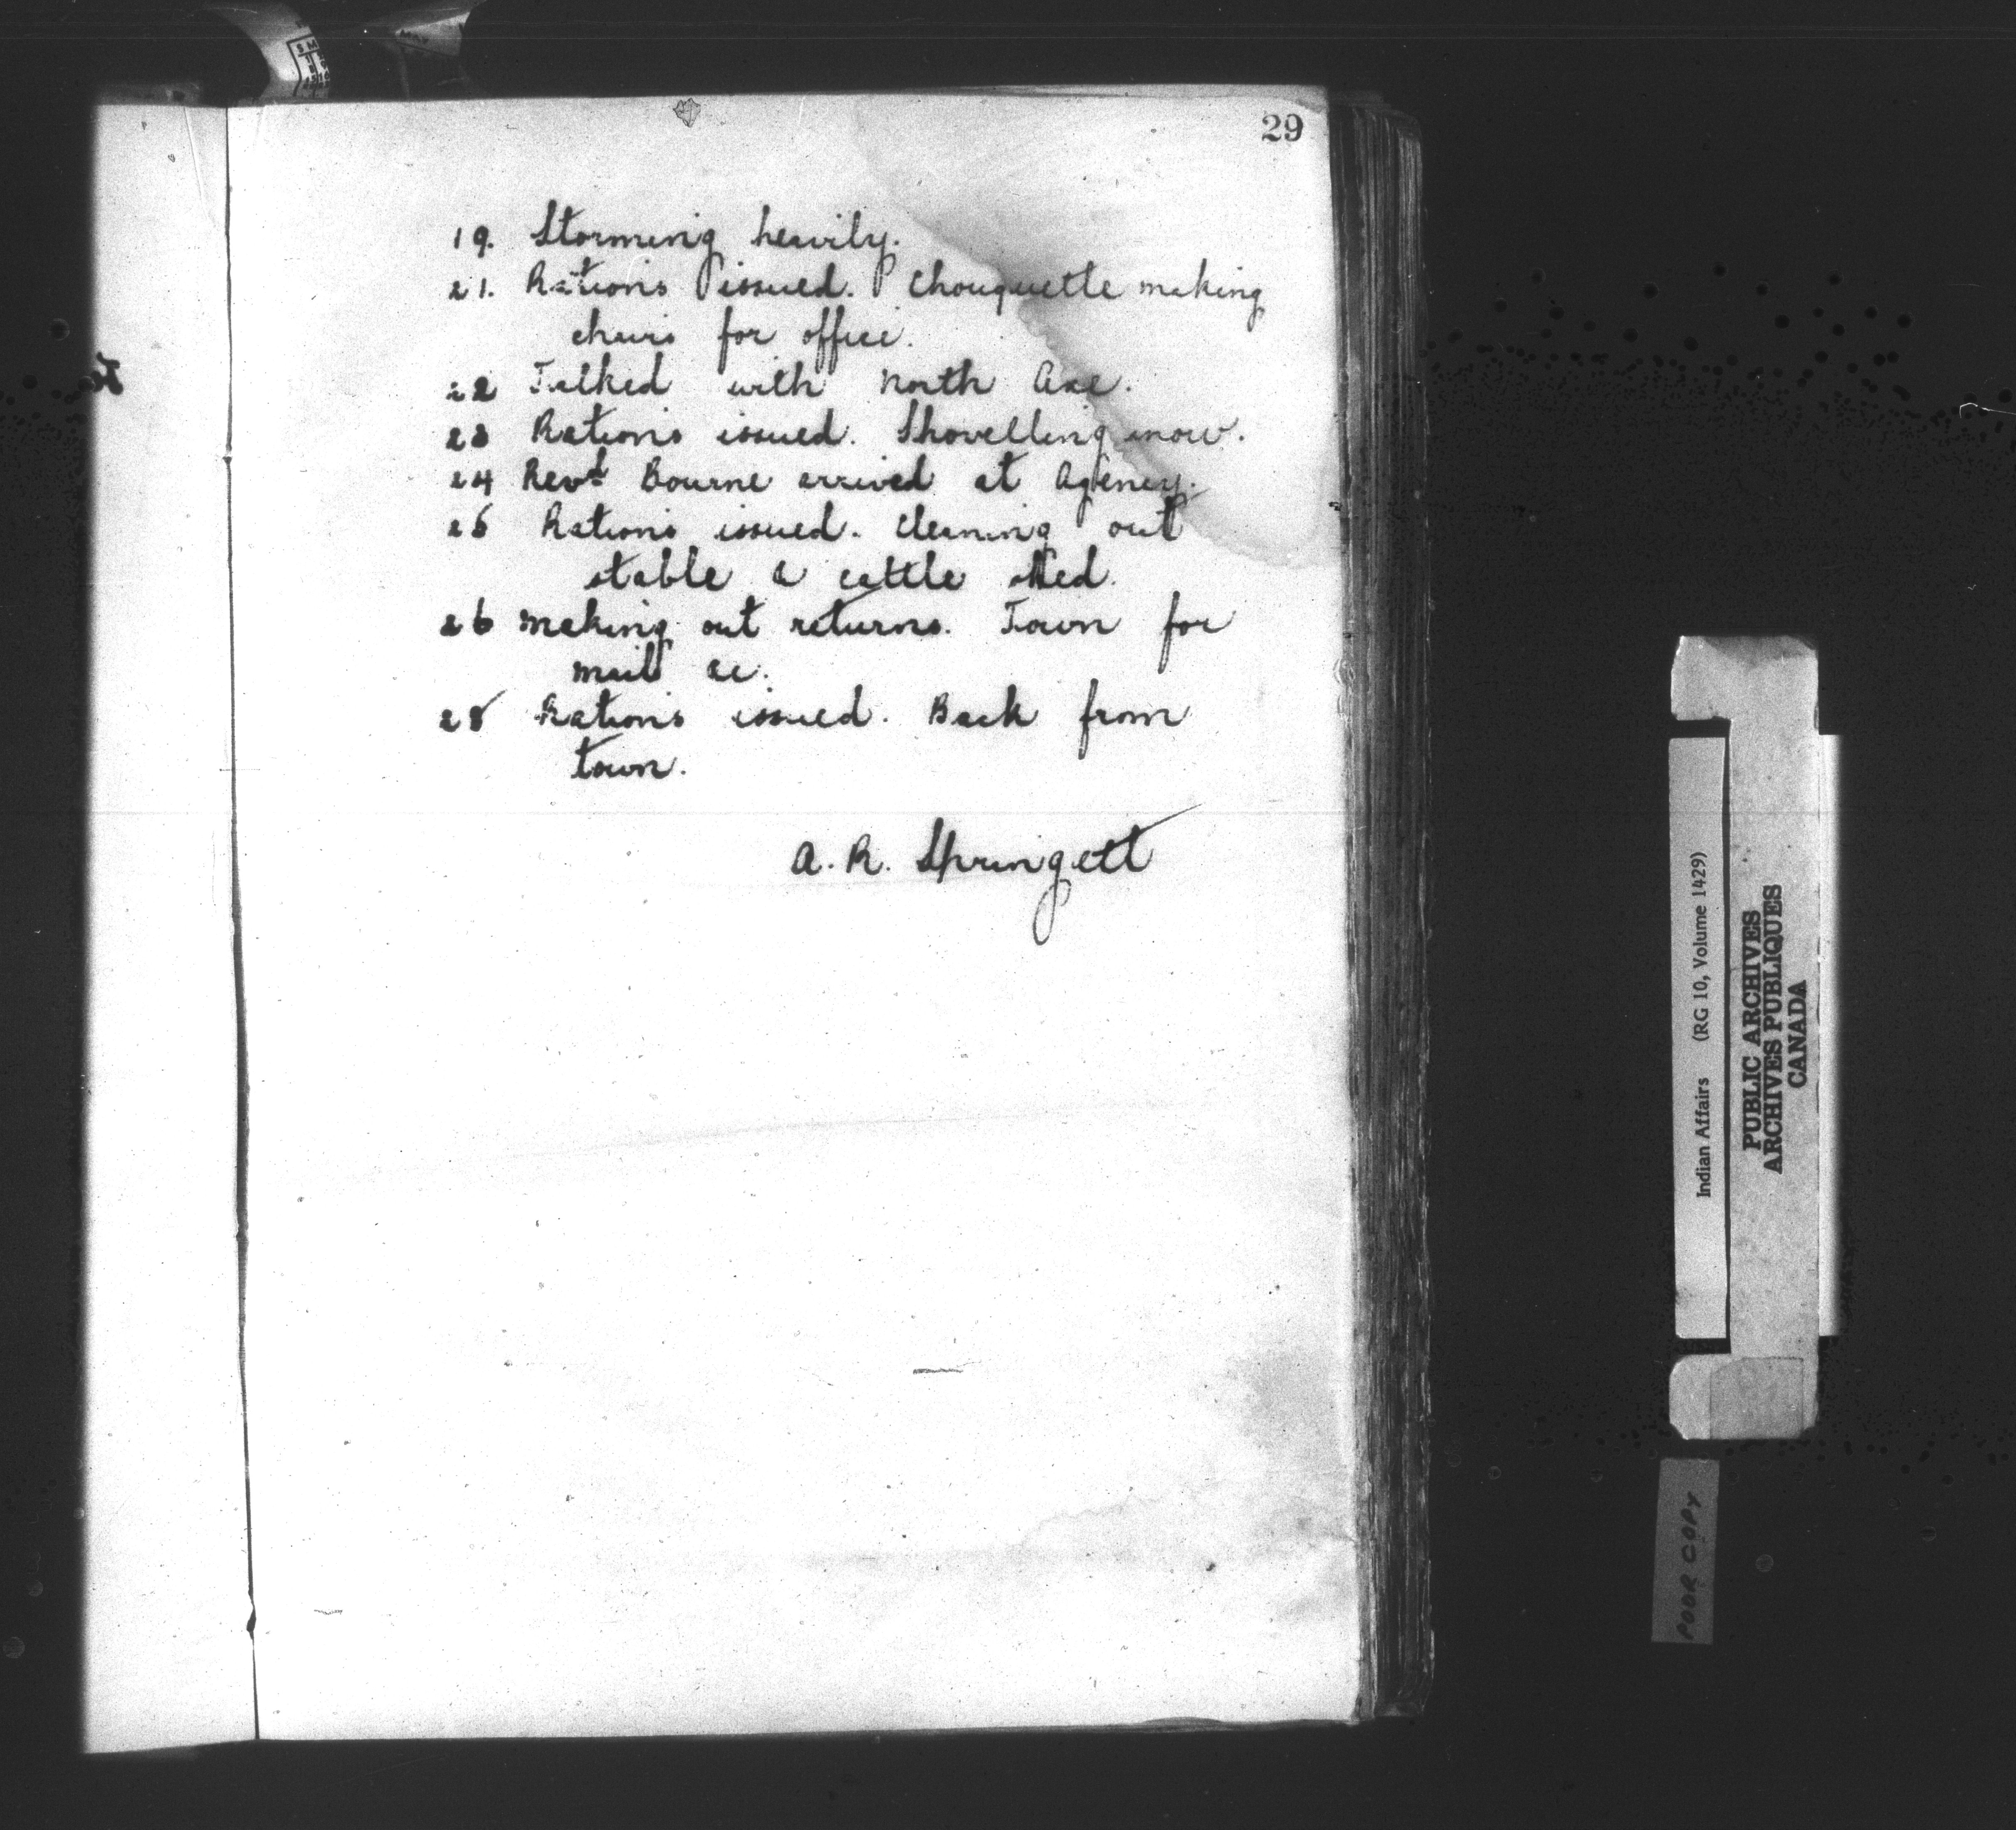 29
19. Storming heavily.
21. Rations issued. Chouquette making
chairs for office.
22 Talked with North Axe.
23 Rations issued. Shovelling snow.
24 Revd Bourne arrived at Agency.
25 Rations issued. Cleaning out
stable & cattle shed.
26 Making out returns. Town for
mail &c.
28 Rations issued. Back from
town.
A. R. Springett
Indian Affairs (RG 10, Volume 1429)
PUBLIC ARCHIVES
ARCHIVES PUBLIQUES
CANADA
POOR COPY